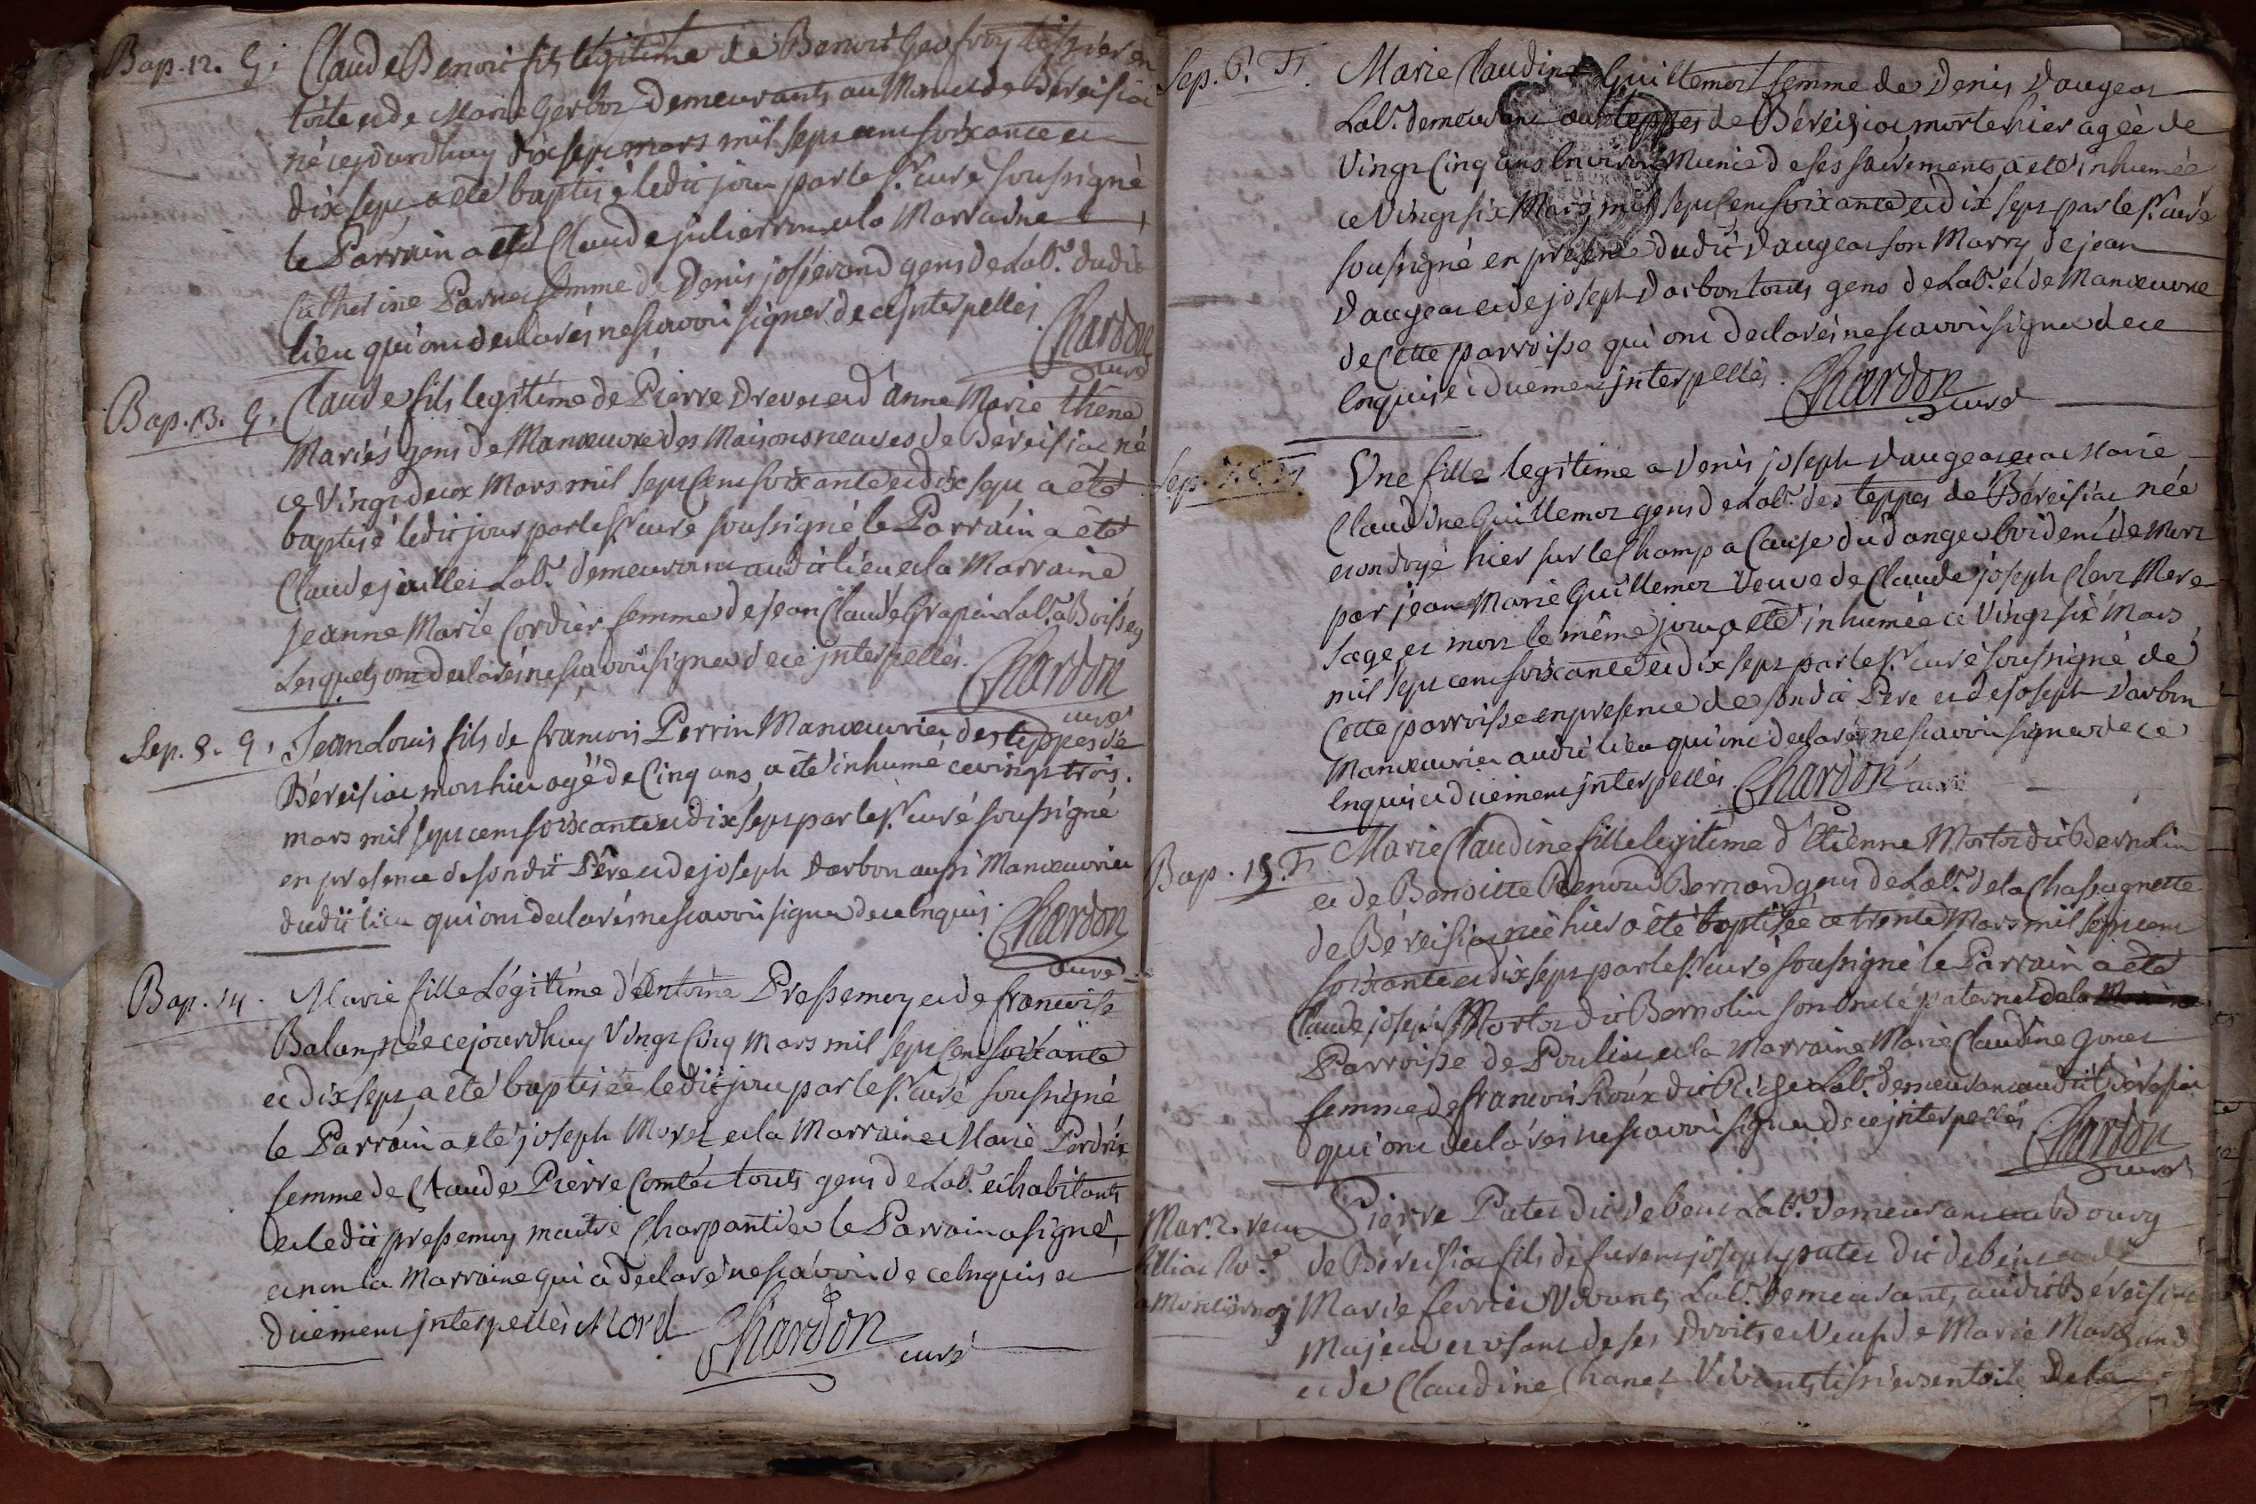 Bap. 12. G.
Claude Benoit fils légitime de Benoit Geofroy tissier en
toile et de Marie Gerboz demeurants au de Béreisiat
né cejourdhuy dix sept mars mil sept cent soixante et
dix sept, a été baptisé ledit jour par le sr. curé soussigné
le Parrain a été Claude julierron et la Marraine
Catherine femme de Denis josserand gens de Labr. dudit
lieu qui ont declarés ne scavoir signer de ce Interpellés.
Chardon
curé
Bap. 13. G.
Claude fils legitime de Pierre Drevet et d'anne Marie thène
Mariés gens de Manœuvre des Maisons neuves de Béreisiat né
ce Vingt deux Mars mil sept Cent soixante et dix sept a été
baptisé ledit jour par le sr. curé soussigné, le Parrain a été
Claude jaillet Labr. demeurant audit lieu et la Marraine
Jeanne Marie Cordier femme de jean Claude Grapin Labr. a Boissey
Lesquels ont declarés ne scavoir signer de ce jnterpellés.
Chardon
curé
Sep. 5. G.
Jean Louis fils de francois Perrin Manœuvrier des teppes de
Béreisiat mort hier agé de Cinq ans, a été inhumé ce vingt trois
mars mil sept cent soixante et dix sept par le sr. curé soussigné
en presence de sondit Père et de joseph Darbon aussi Manœuvrier
dudit lieu qui ont declarés ne scavoir signer de ce Enquis.
Chardon
curé
Bap. 14.
Marie fille Légitime d'Antoine Pressemoy et de francoise
Balan, née cejourdhuy Vingt Cinq Mars mil sept Cent soixante
et dix sept, a été baptisée ledit jour par le sr. Curé soussigné
le Parrain a été joseph Morel et la Marraine Marie Perdrix
femme de Claude Pierre Comtet touts gens de Labr. et habitants
et ledit pressemoy maitre Charpantier le Parrain a signé,
et non la Marraine qui a declaré ne scavoir de ce Enquis et
duëment jnterpellés Morel
Chardon
curé
Sep. 6. F.
Marie Claudine Guillemot femme de Denis Daugeat
Labr. demeurant aux teppes de Béreisiat morte hier agéé de
Vingt Cinq ans Environ Munie de ses sacrements, a été inhumée
ce Vingt six Mars mil sept Cent soixante et dix sept par le sr. Curé
soussigné en presence dudit Daugeat son Marry de jean
Daugeat et de joseph Darbon touts gens de Labr. et de Manœuvre
de Cette parroisse qui ont declarés ne scavoir signer de ce
Enquis et duëment jnterpellés.
Chardon
curé
Sep. F.
Une fille legitime a Denis joseph Daugeat et a Marie
Claudine Guillemot gens de Labr. des teppes de Béreisiat née
et ondoyé hier sur le Champ a Cause du danger Evident de mort
par jean Marie Guillemot veuve de Claude joseph Clerc Mere
sage et mort le même jour, a été inhumée ce Vingt six Mars
mil sept cent soixante et dix sept par le sr. curé soussigné de
Cette parroisse en presence de son dit Pere et de joseph Darbon
Manœuvrier audit lieu qui ont declarés ne scavoir signer de ce
Enquis et duëment jnterpellés.
Chardon curé
Bap. 15. F.
Marie Claudine fille legitime d'Etienne Mortot dit Bernolin
et de Benoitte Renoud Bernard gens de Labr. de la Chassagnette
de Béreisiat née hier a été baptisée ce trente Mars mil sept cent
soixante et dix sept par le sr. curé soussigné le Parrain a été
Claude joseph Mortot dit Bernolin son oncle paternel de la
Parroisse de Poulin et la Marraine Marie Claudine Gonet
femme de francois Roux dit Labr. demeurant audit Béreisiat
qui ont declarés ne scavoir signer de ce jnterpellés
Chardon
curé
Mar. 2.
Pierre Putet dit debeur Labr. demeurant au bourg
de Béreisiat fils de furent joseph putet dit debeur et de
Marie ferrier Vivants Labr. demeurants audit Béreisiat
Majeur et usant de ses droits et Veuf de Marie Marchand
et de Claudine Chanel Vivants tissiers en toile de la